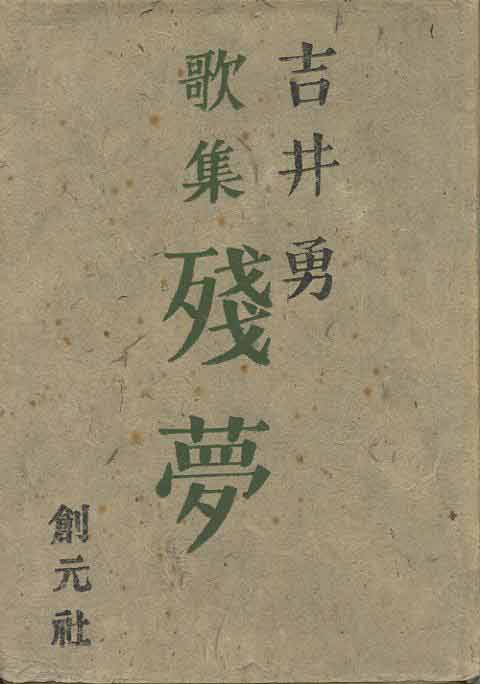 吉井勇
歌集 殘夢
創元社